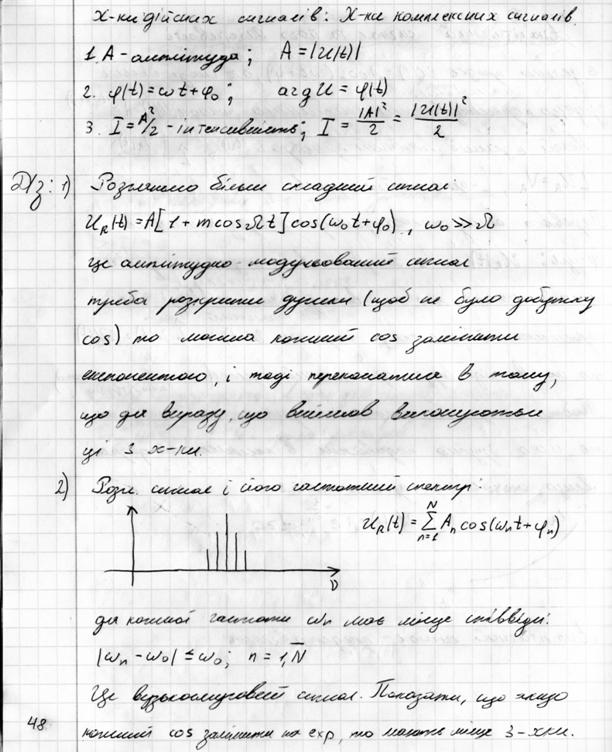 Х-ки дійсних сигналів: Х-ки комплексних сигналів.
1. A - амплітуда; A = |U(t)|
2. φ(t) = ωt + φ₀; arg U = φ(t)
3. I = A²/2 - інтенсивність; I = |A|²/2 = |U(t)|²/2
Д/з: 1) Розглянемо більш складний сигнал:
U_R(t) = A[1 + m cos Ωt] cos(ω₀t + φ₀), ω₀ >> Ω
Це амплітудно-модульований сигнал
треба розкрити дужки (щоб не було добутку
cos) то можна кожний cos замінити
експонентою, і тоді переконатися в тому,
що для виразу, що вийшов виконуються
ці 3 х-ки.
2) Розгл. сигнал і його частотний спектр:
U_R(t) = Σ_{n=1}^{N} A_n cos(ω_n t + φ_n)
ν
для кожної частоти ω_n має місце співвідн.:
|ω_n - ω₀| ≤ ω₀; n = 1,N̅
Це вузькосмуговий сигнал. Показати, що якщо
кожний cos замінити на exp, то мають місце 3-хки.
48